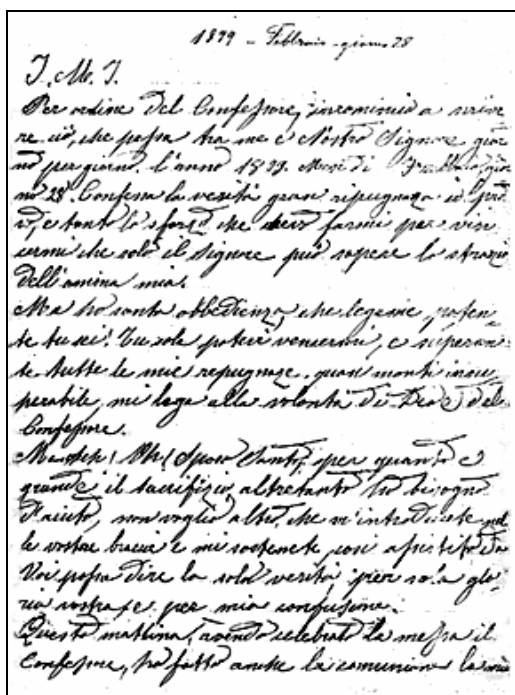 1899 - Febbraio - giorno 28
J. M. J.
Per ordine del Confessore, incomincio a scrive
re ciò, che passa tra me e Nostro Signore gior
no per giorno. l'anno 1899. Mese di Febbraio, gior
no 28. Confesso la verità gran ripugnaza io pro
vo, è tanto lo sforzo che devo farmi per vin
cermi che solo il Signore può sapere lo strazio
dell'anima mia.
Ma ho santa obbedienza, che legame, poten
te tu sei! Tu sola potevi vincermi, e superan
do tutte le mie repugnaze, quasi monti insu
perabile, mi lega alla volontà di Dio e del
Confessore.
Ma deh! Oh! Sposo Santo, per quanto è
grande il sacrifizio, altretanto ho bisogno
d'aiuto, non voglio altro, che m'introducete nel
le vostre braccia e mi sostenete, così assistito da
Voi possa dire la sola verità per sola glo
ria vostra, e per mia confusione.
Questa mattina, avendo celebrato la messa il
Confessore, ho fatto anche la comunione la mia